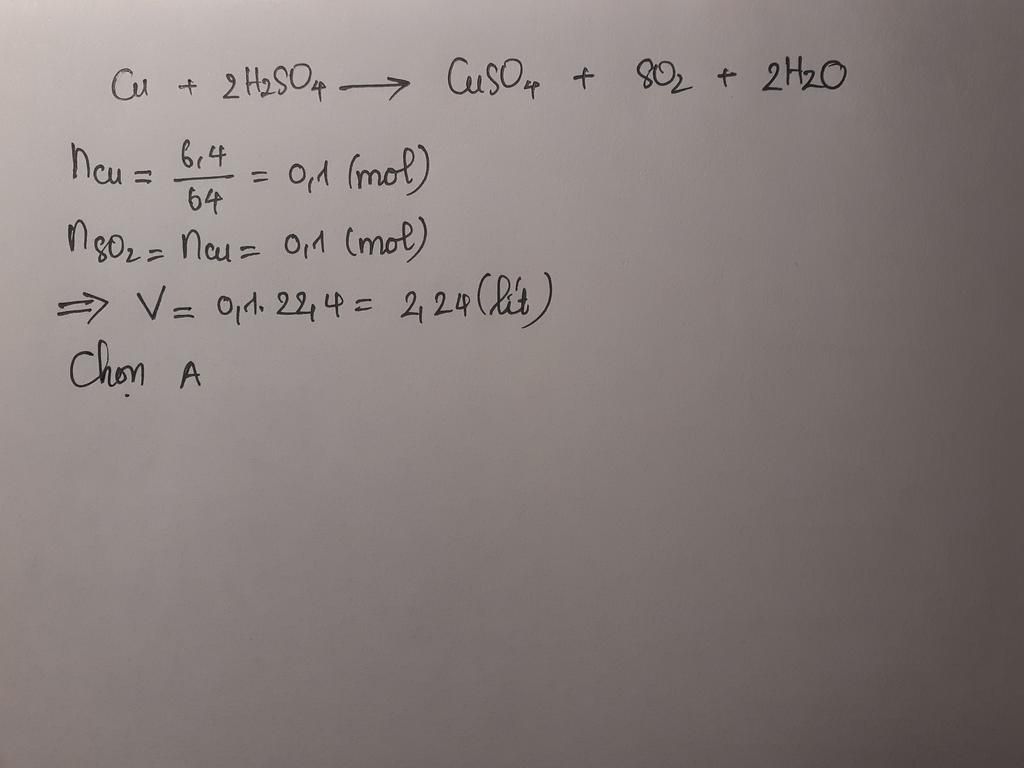 Cu + 2H2SO4 ⟶ CuSO4 + SO2 + 2H2O
nCu = 6,4/64 = 0,1 (mol)
nSO2 = nCu = 0,1 (mol)
=> V = 0,1. 22,4 = 2,24 (lít)
Chọn A